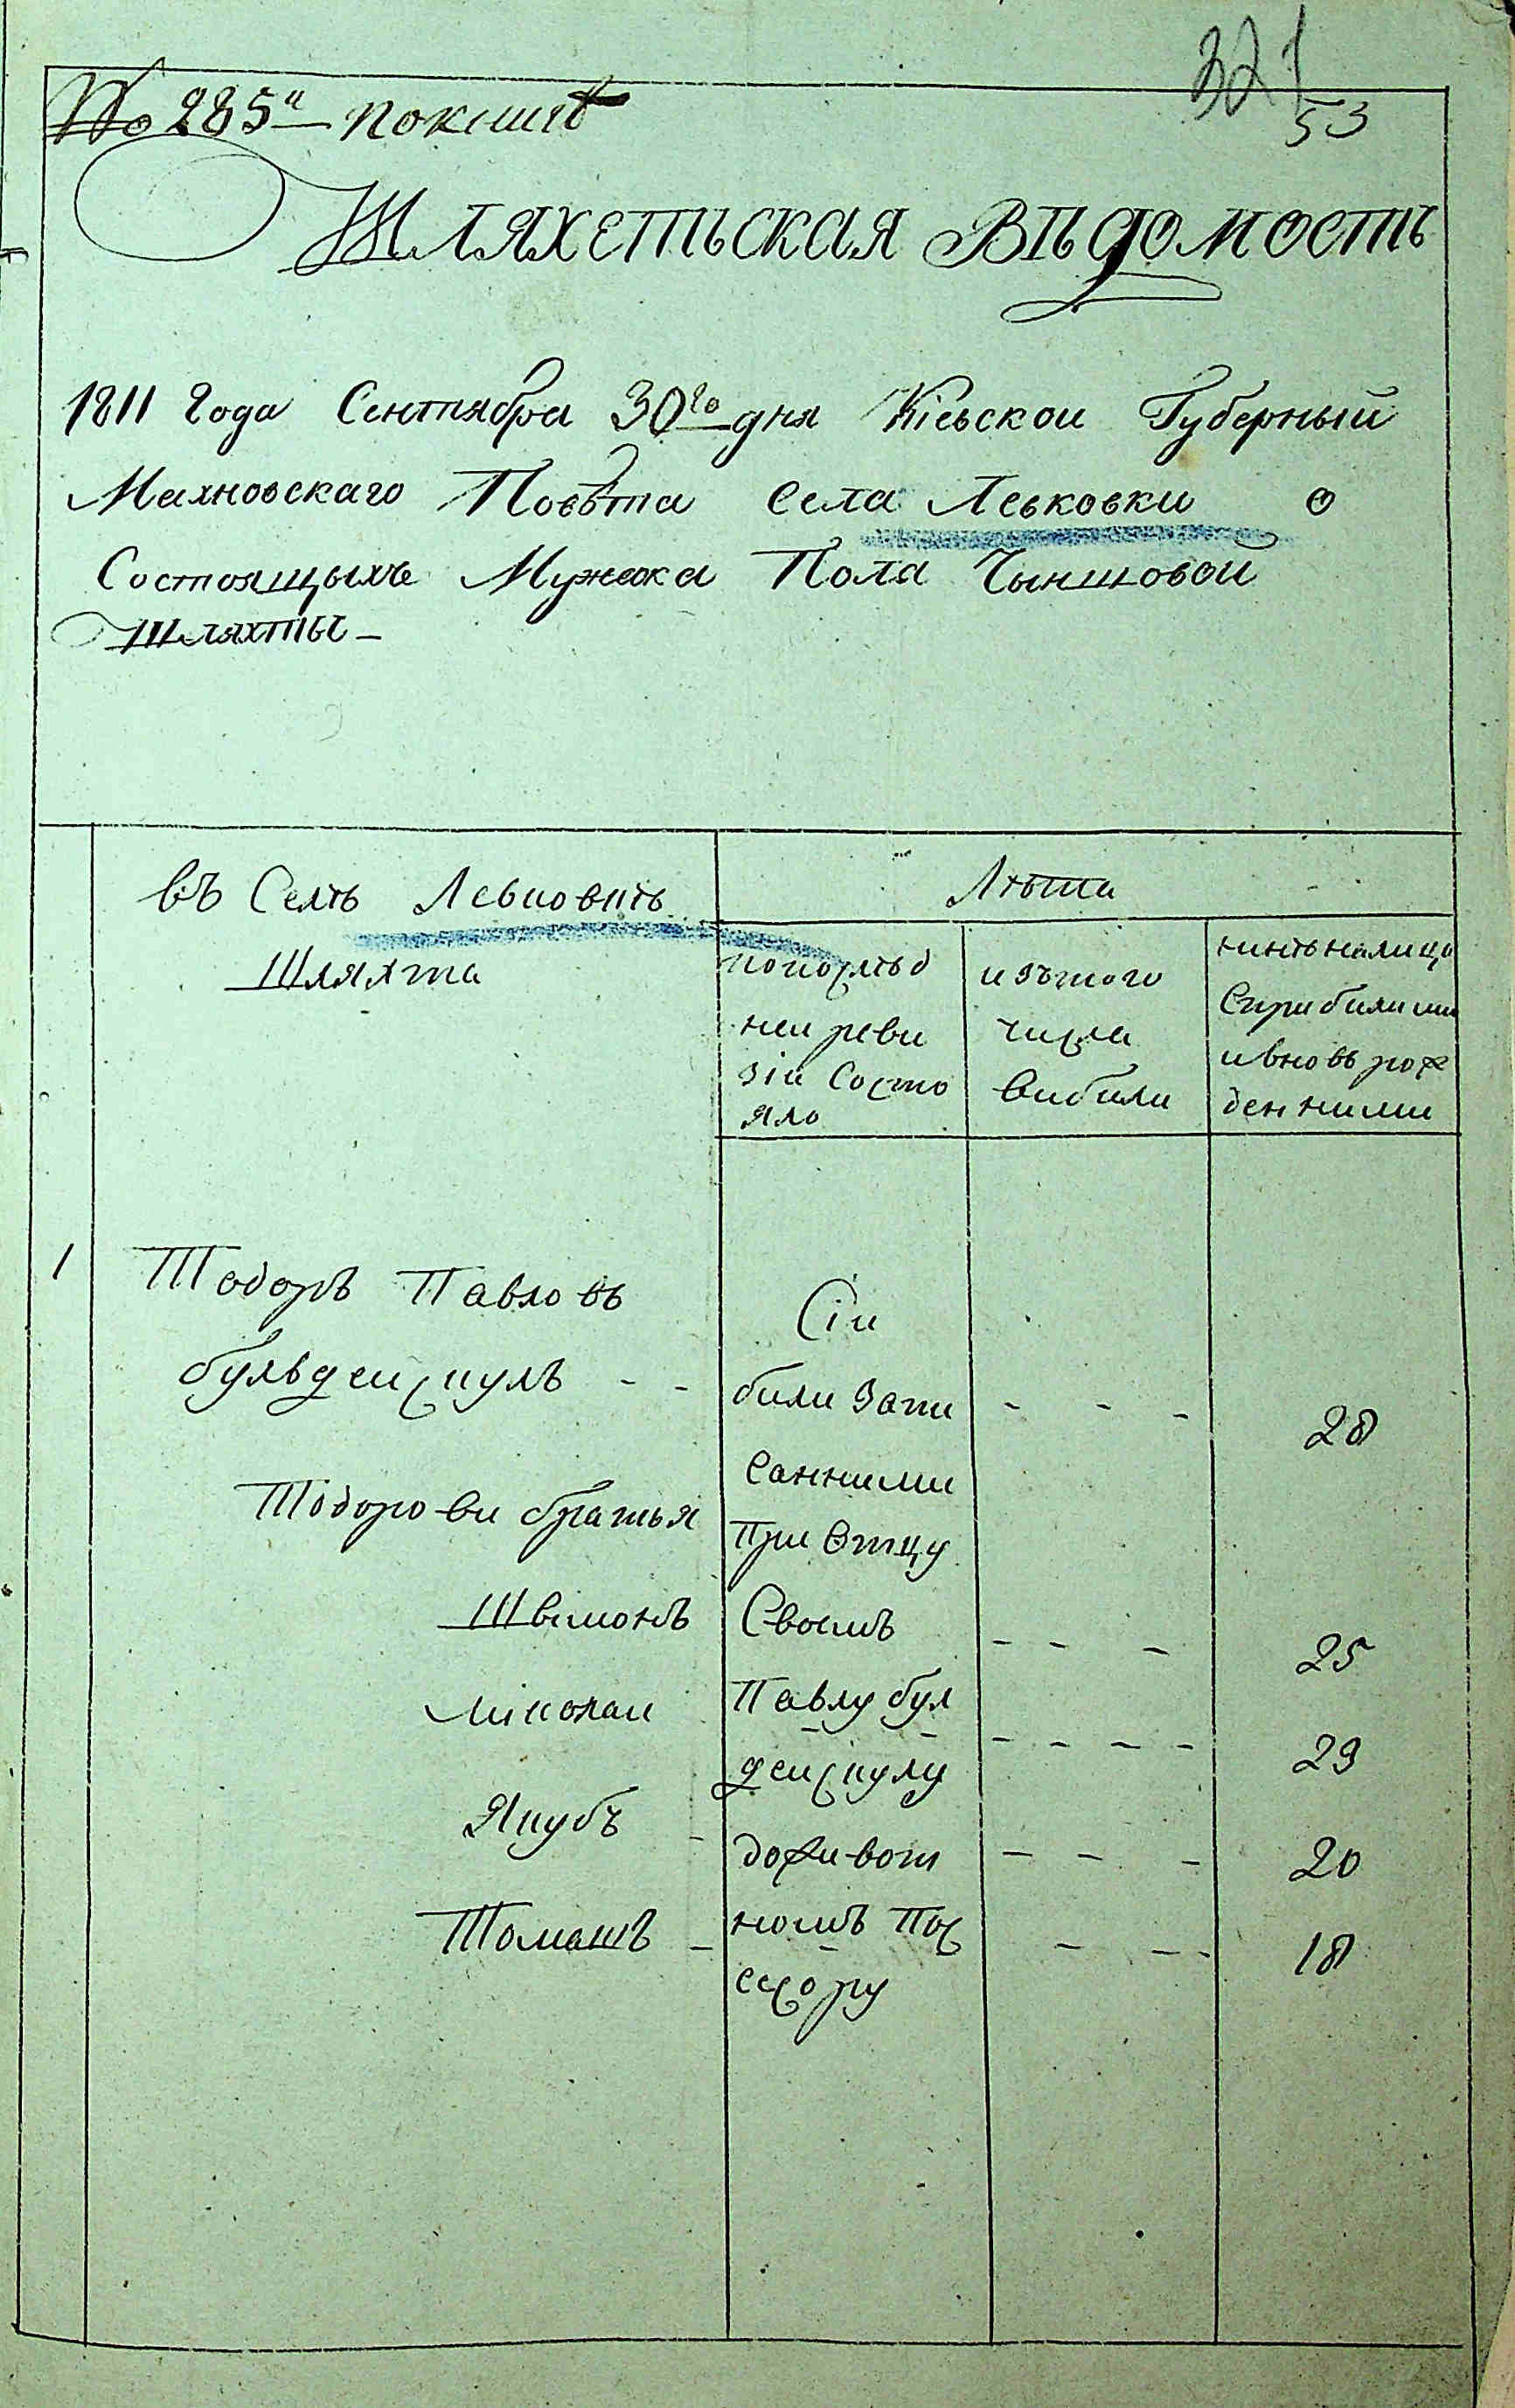 321
53
№ 285й покшивѣ
Шляхетьская Вѣдомость
1811 Года Сентября 30го дня Кіевской Губерный
Махновскаго Повѣта Села Левковки о
Состоящыхъ Мужска Пола Чыншовой
Шляхты
въ Селѣ Левковкѣ
Шляхта
Лѣта
попослѣд
неи реви
зіи Состо
яло
изътого
числа
вибили
нинѣ налицо
Сприбилими
ивновь рож
денними
1 Тодоръ Павловъ
бульдескулъ - -
Сіи
били Запи
санними
При Отцу
Своимъ
Павлу бул
дескулу
доживот
номъ Пос
есору
- - - 28
Тодорови братья
Швимонъ - - - 25
Миколаи - - - - 23
Якубъ - - - - 20
Томашъ - - - - 18